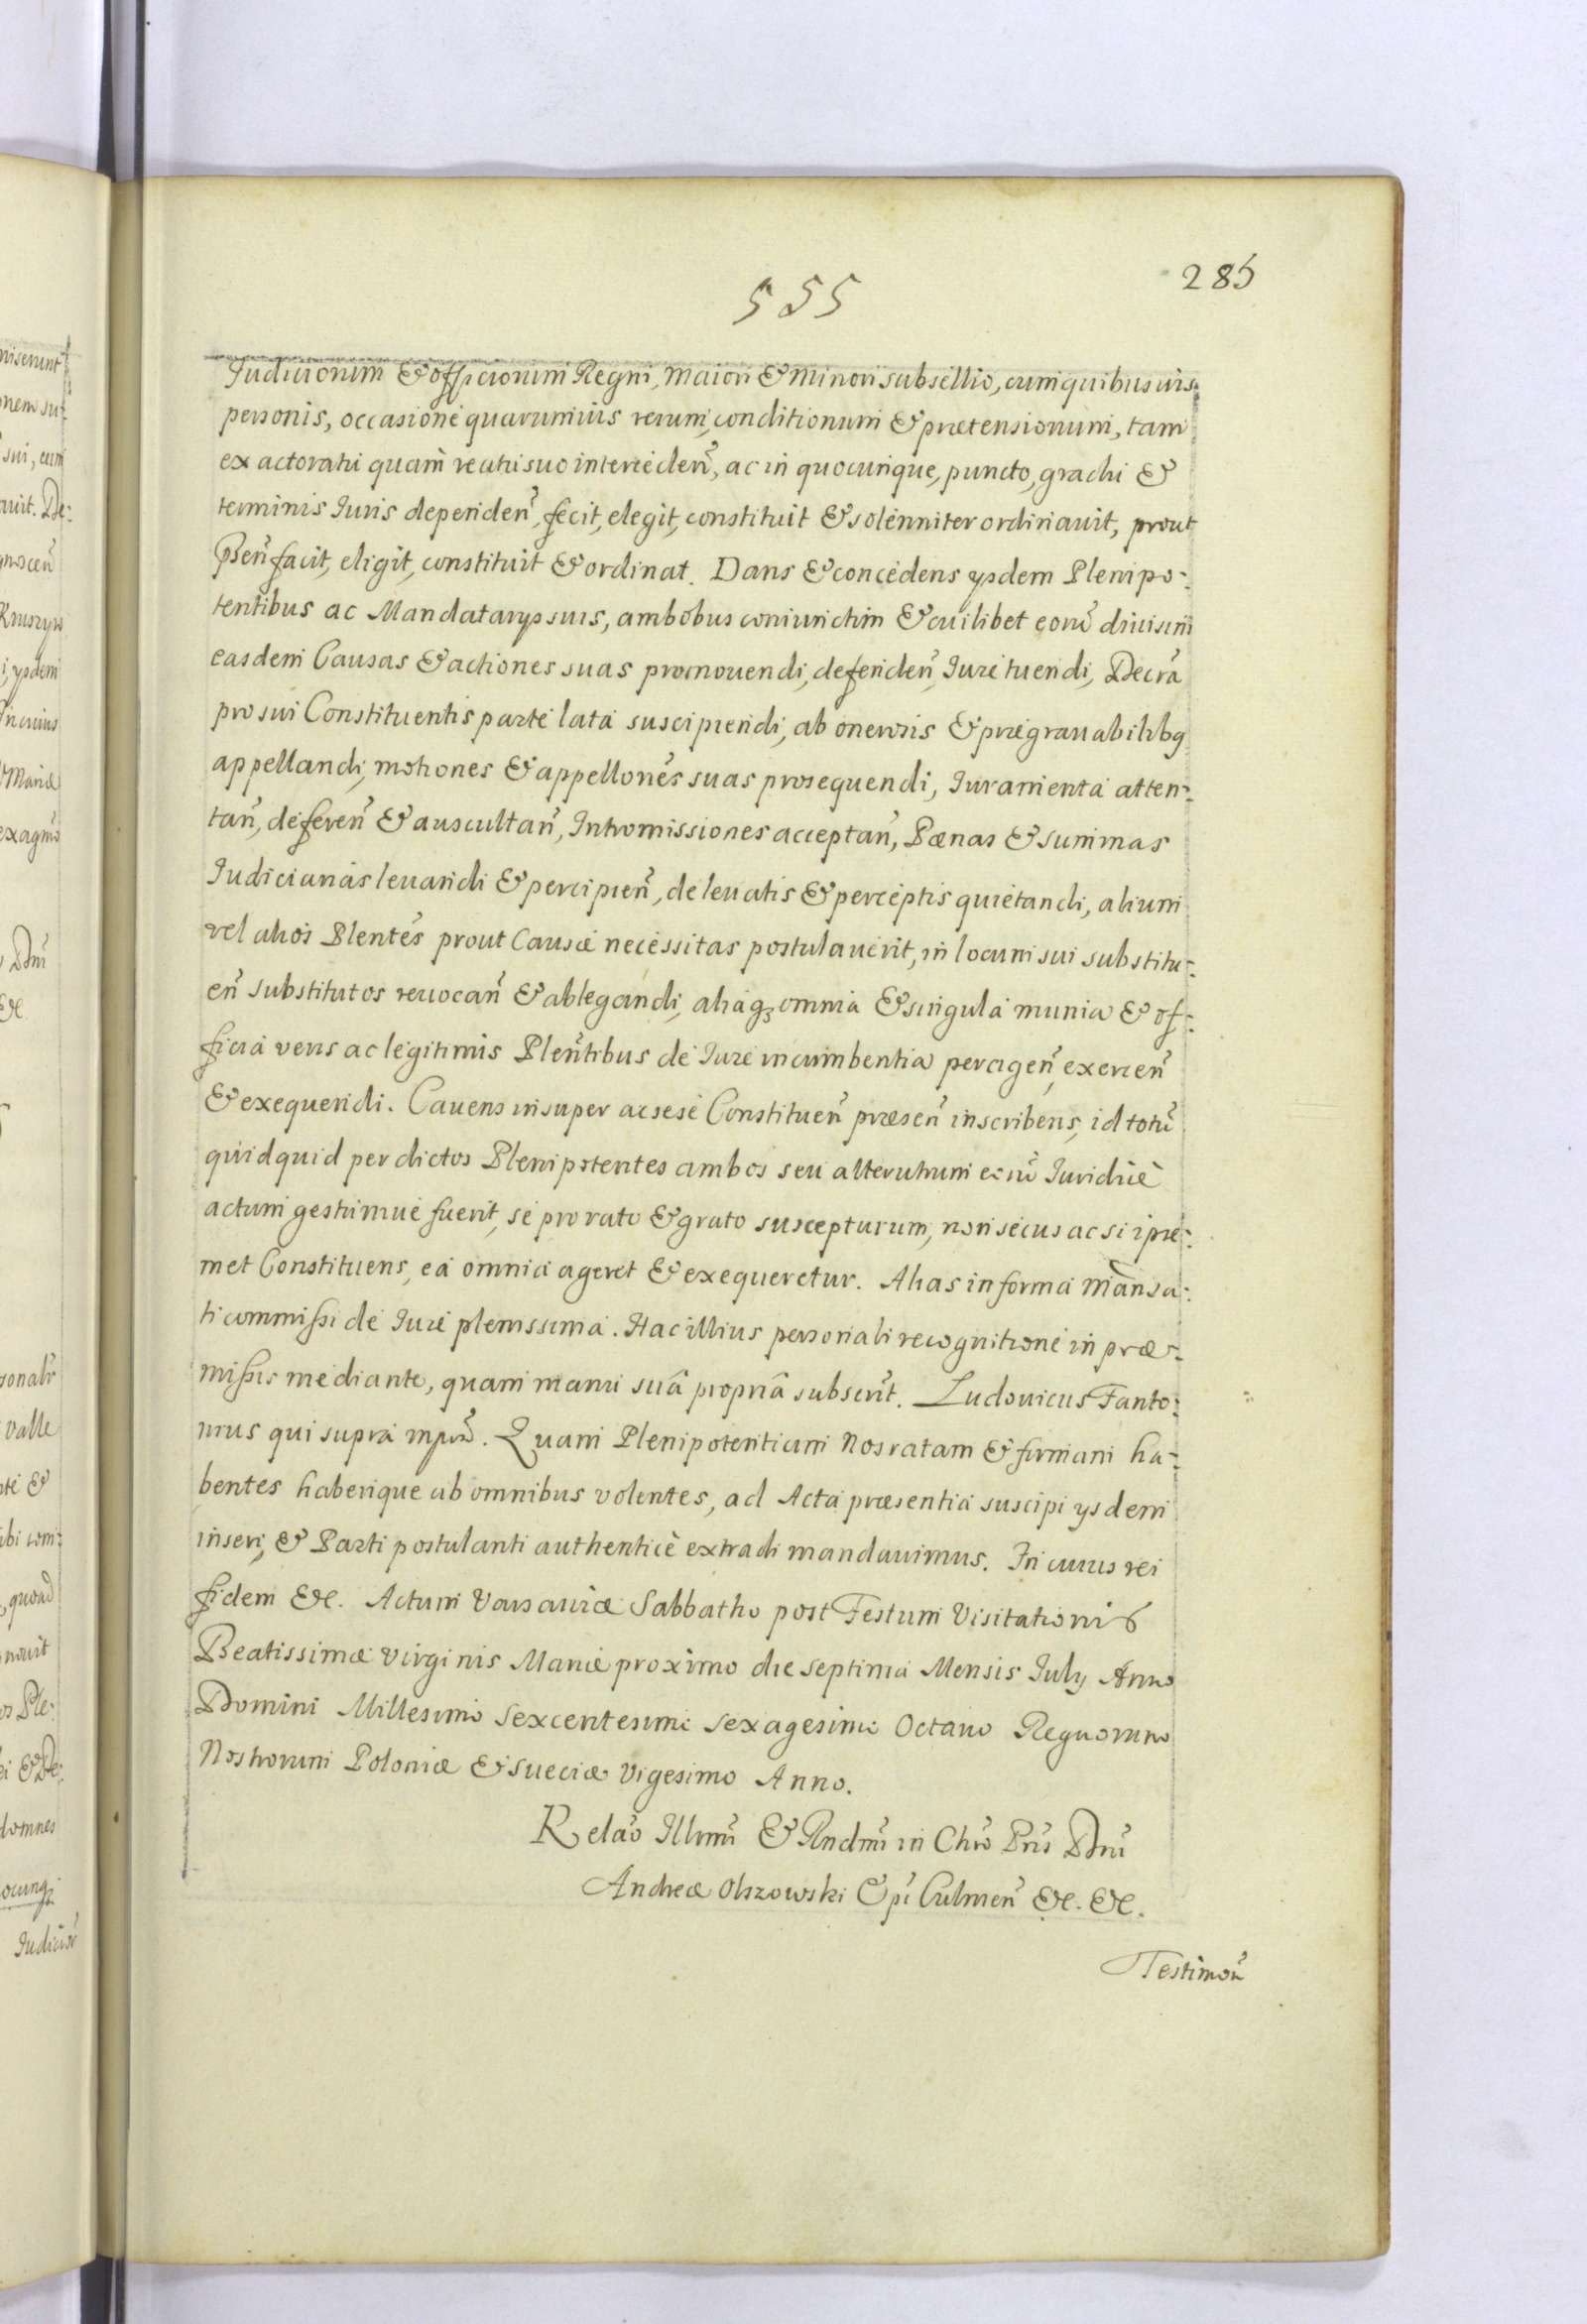 555
285
Iudiciorum & officiorum Regni, maiori & minori subsellio, cum quibusuis
personis, occasione quarumuis rerum, conditionum & prætensionum, tam
ex actoratu quam reatu suo interceden̄, ac in quocunque, puncto, gradu &
terminis Iuris dependen̄, fecit, elegit, constituit & solenniter ordinauit, prout
Pn̄ facit, eligit, constituit & ordinat. Dans & concedens ysdem Plenipo:
tentibus ac Mandatarys suis, ambobus coniunctim & cuilibet eorū diuisim
easdem Causas & actiones suas promouendi, defenden̄, Iure tuendi, Decrā
pro sui Constituentis parte lata suscipiendi, ab onerosis & prægrauabilibꝯ
appellandi, motiones & appellon̄es suas prosequendi, Iuramenta atten:
tan̄, deferen̄ & auscultan̄, Intromissiones acceptan̄, Pænas & summas
Iudiciarias leuandi & percipien̄, de leuatis & perceptis quietandi, alium
vel alios Plen̄tes prout Causæ necessitas postulauerit, in locum sui substitu:
en̄ substitutos reuocan̄ & ablegandi, aliaqꝫ omnia & singula munia & of:
ficia veris ac legitimis Plen̄tibus de Iure incumbentia peragen̄, exercen̄
& exequendi. Cauens insuper ac sese Constituen̄ præsen̄ inscribens, id totū
quidquid per dictos Plenipotentes ambos seu alterutrum eorū Iuridicè
actum gestumue fuerit, se pro rato & grato suscepturum, non secus ac si ipse:
met Constituens, ea omnia ageret & exequeretur. Alias in forma Manda:
ti commissi de Iure plenissima. Hac illius personali recognitione in præ:
missis mediante, quam manu suâ propriâ subscrit̄. Ludouicus Fanto:
nius qui supra mpr̄. Quam Plenipotentiam Nos ratam & firmam ha:
bentes haberique ab omnibus volentes, ad Acta præsentia suscipi ysdem
inseri, & Parti postulanti authenticè extradi mandauimus. In cuius rei
fidem &c. Actum Varsauiæ Sabbatho post Festum Visitationis
Beatissimæ Virginis Mariæ proximo die septima Mensis July Anno
Domini Millesimo sexcentesimo sexagesimo Octauo Regnorum
Nostrorum Poloniæ & Sueciæ Vigesimo Anno.
Relāo Illmī & Rndmī in Chrō Pris̄ Dnī
Andreæ Olszowski Epī Culmen̄ &c. &c.
Testimon̄